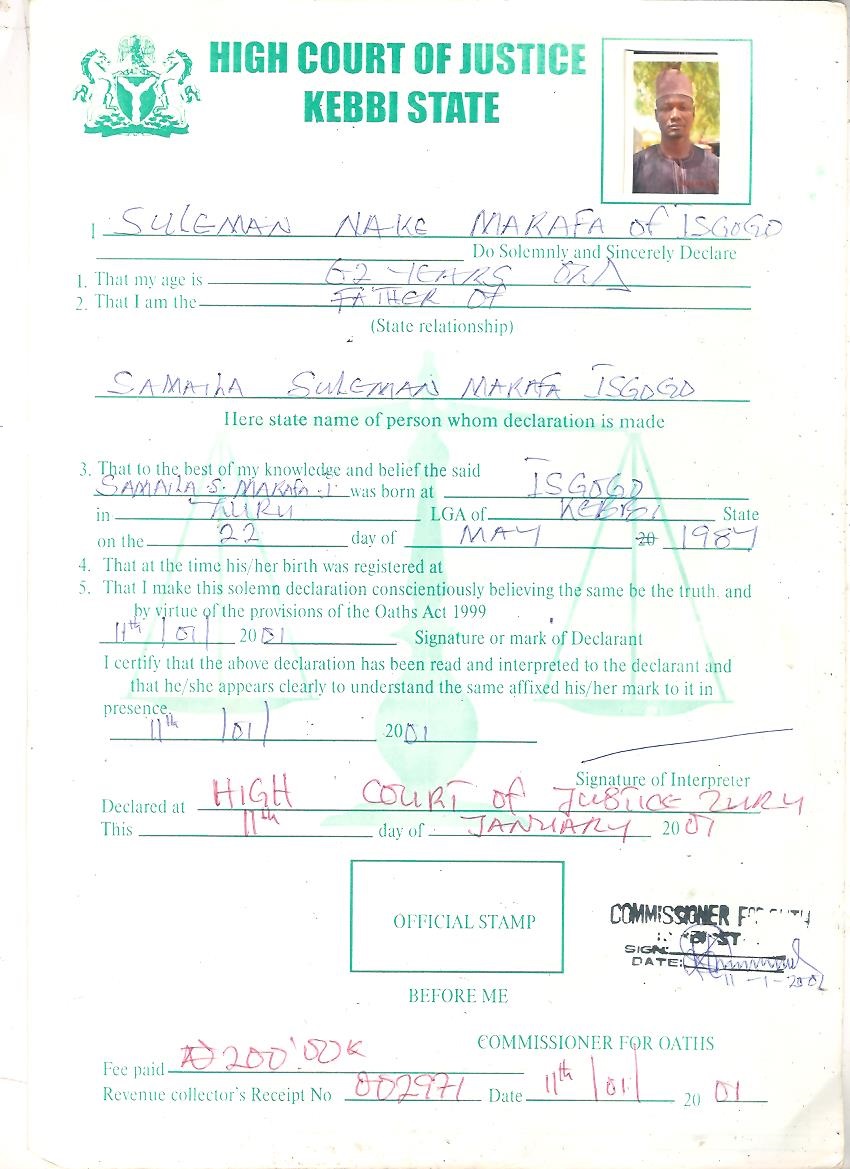 HIGH COURT OF JUSTICE
KEBBI STATE
I SULEMAN NAKE MAKAFA of ISGOGO
Do Solemnly and Sincerely Declare
1. That my age is 62 YEARS OLD
2. That I am the FATHER OF
(State relationship)
SAMAILA SULEMAN MAKAFA ISGOGO
Here state name of person whom declaration is made
3. That to the best of my knowledge and belief the said
SAMAILA S. MAKAFA .I. was born at ISGOGO
in ZURU LGA of KEBBI State
on the 22 day of MAY 20 1987
4. That at the time his/her birth was registered at
5. That I make this solemn declaration conscientiously believing the same be the truth. and
by virtue of the provisions of the Oaths Act 1999
11th /01/ 2001 Signature or mark of Declarant
I certify that the above declaration has been read and interpreted to the declarant and
that he/she appears clearly to understand the same affixed his/her mark to it in
presence.
11th /01/ 2001
Signature of Interpreter
Declared at HIGH COURT of JUSTICE ZURU
This 11th day of JANUARY 2001
OFFICIAL STAMP
COMMISSIONER
SIGN:
DATE:
BEFORE ME
COMMISSIONER FOR OATHS
Fee paid ₦200'00K
Revenue collector's Receipt No 002971 Date 11th /01/ 2001